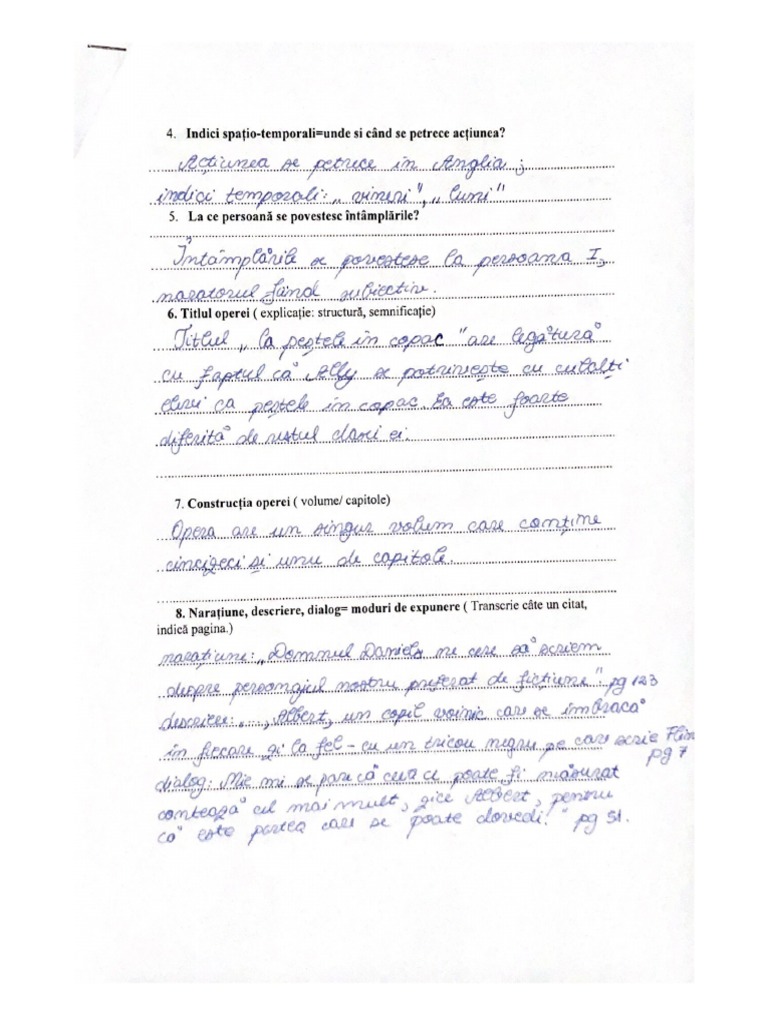 4. Indici spațio-temporali=unde si când se petrece acțiunea?
Acțiunea se petrece în Anglia;
indici temporali: „vineri", „luni"
5. La ce persoană se povestesc întâmplările?
Întâmplările se povestesc la persoana I,
naratorul fiind subiectiv.
6. Titlul operei ( explicație: structură, semnificație)
Titlul „La peștele în copac" are legătură
cu faptul că Ally se potrivește cu ceilalți
elevi ca peștele în copac. Ea este foarte
diferită de restul clasei ei.
7. Construcția operei ( volume/ capitole)
Opera are un singur volum care conține
cincizeci și unu de capitole.
8. Narațiune, descriere, dialog= moduri de expunere ( Transcrie câte un citat,
indică pagina.)
narațiune: „Domnul Daniels ne cere să scriem
despre personajul nostru preferat de ficțiune". pg 123
descriere: „..., Albert, un copil voinic care se îmbracă
în fiecare zi la fel - cu un tricou negru pe care scrie Flin
pg 7
dialog: Mie mi se pare că ceea ce poate fi măsurat
contează cel mai mult, zice Albert, pentru
că este partea care se poate dovedi!" pg 51.